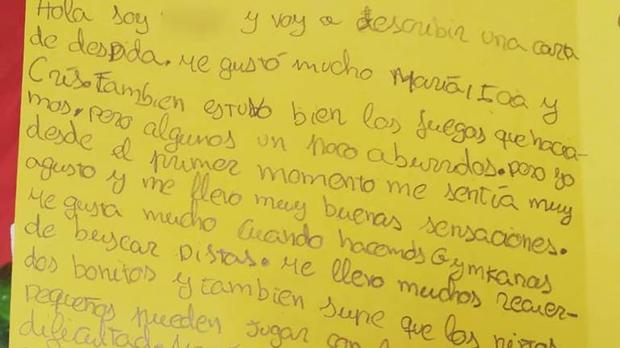 Hola soy y voy a describir una carta
de despida. Me gustó mucho María, Isa y
Cris. También estubo bien los juegos que hacia-
mos, pero algunos un poco aburridos. pero yo
desde el primer momento me sentía muy
agusto y me llevo muy buenas sensaciones.
Me gusta mucho cuando hacemos Gymkanas
de buscar pistas. Me llevo muchos recuer-
dos bonitos y tambien supe que los niños
pequeños pueden jugar con